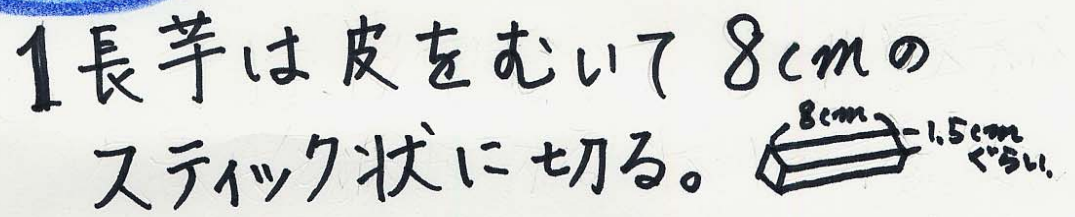 1 長芋は皮をむいて 8cmの
スティック状に切る。
8cm
1.5cm
ぐらい.